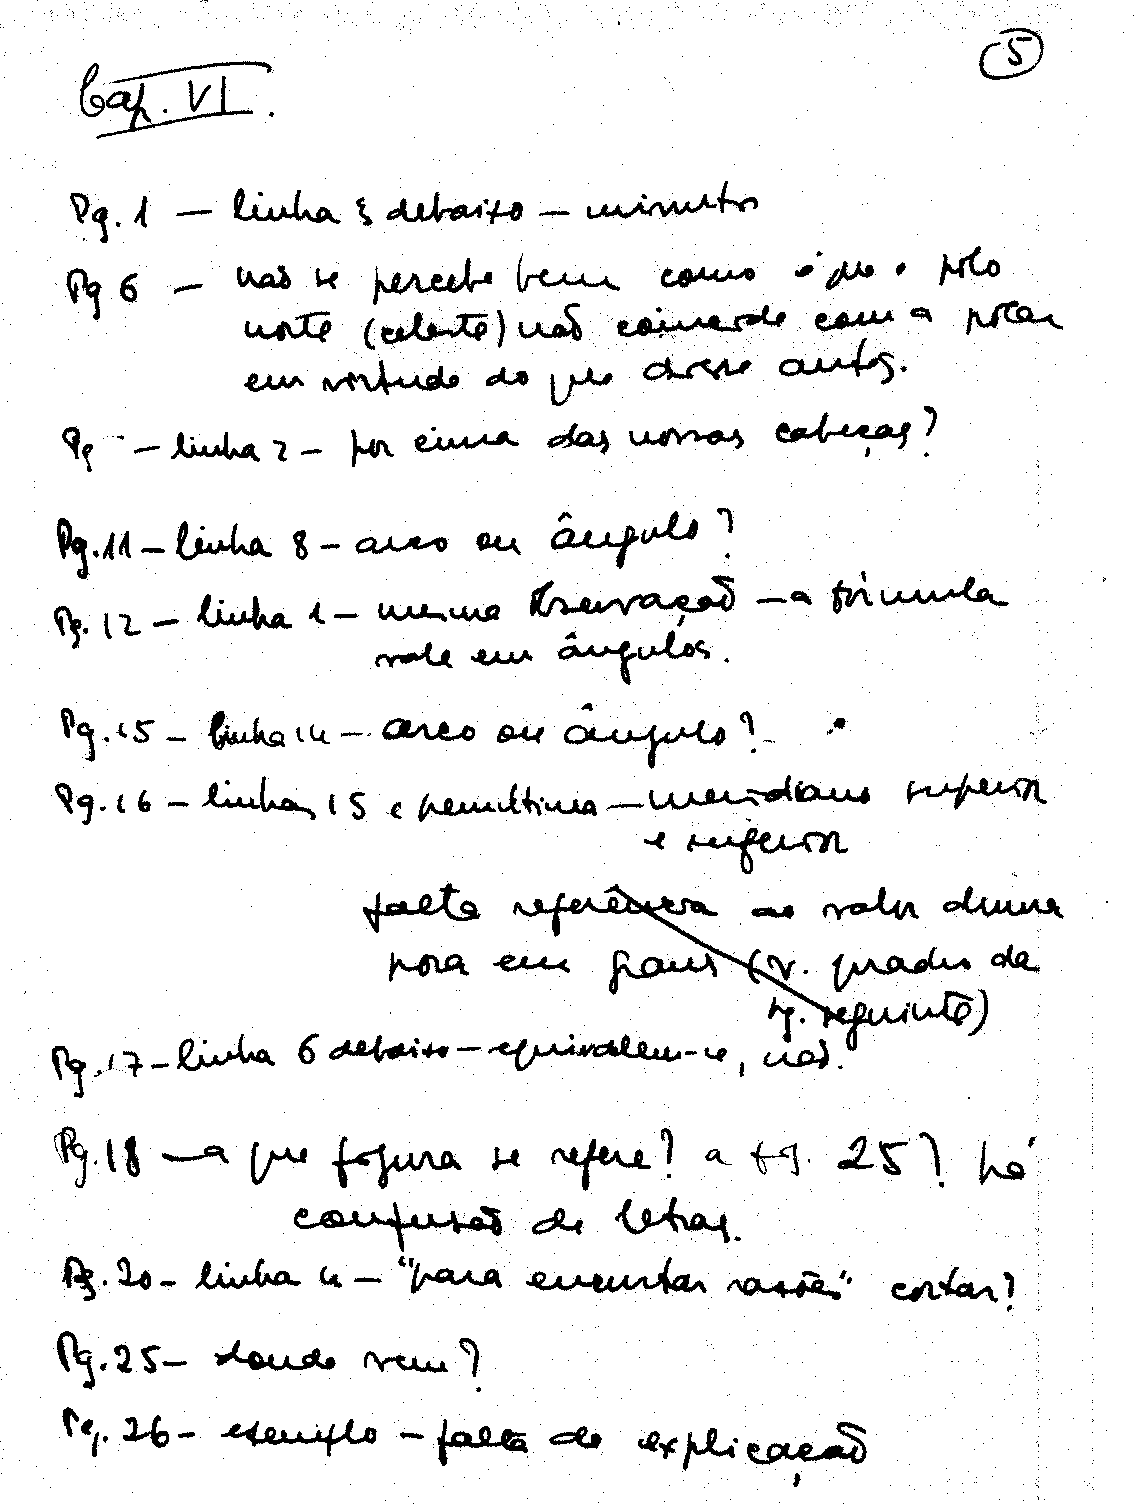 5
Cap. VI.
Pg. 1 — linha 3 debaixo — minutos
Pg 6 — não se percebe bem como é que o polo
norte (celeste) não coincide com a polar
em virtude do que disse antes.
Pg — linha 2 — por cima das nossas cabeças?
Pg. 11 — linha 8 — arco ou ângulo?
Pg. 12 — linha 1 — mesma observação — a fórmula
vale em ângulos.
Pg. 15 — linha 14 — arco ou ângulo?
Pg. 16 — linhas 15 e penultima — meridiano superior
e inferior
falta referência ao valor duma
hora em graus (v. quadro da
pg. seguinte)
Pg. 17 — linha 6 debaixo — equivalem-se, não.
Pg. 18 — a que figura se refere? a fig. 25? há
confusão de letras.
Pg. 20 — linha 4 — "para encurtar razões" cortar?
Pg. 25 — donde vem?
Pg. 26 — exemplo — falta de explicação